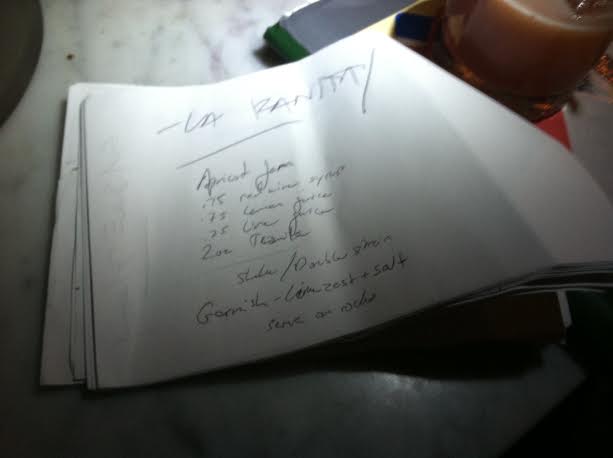 - LA
Apricot Jam
.75 red wine syrup
.75 Lemon juice
.25 Lime juice
2oz Tequila
shake / Double strain
Garnish - Lime zest + salt
serve on rocks